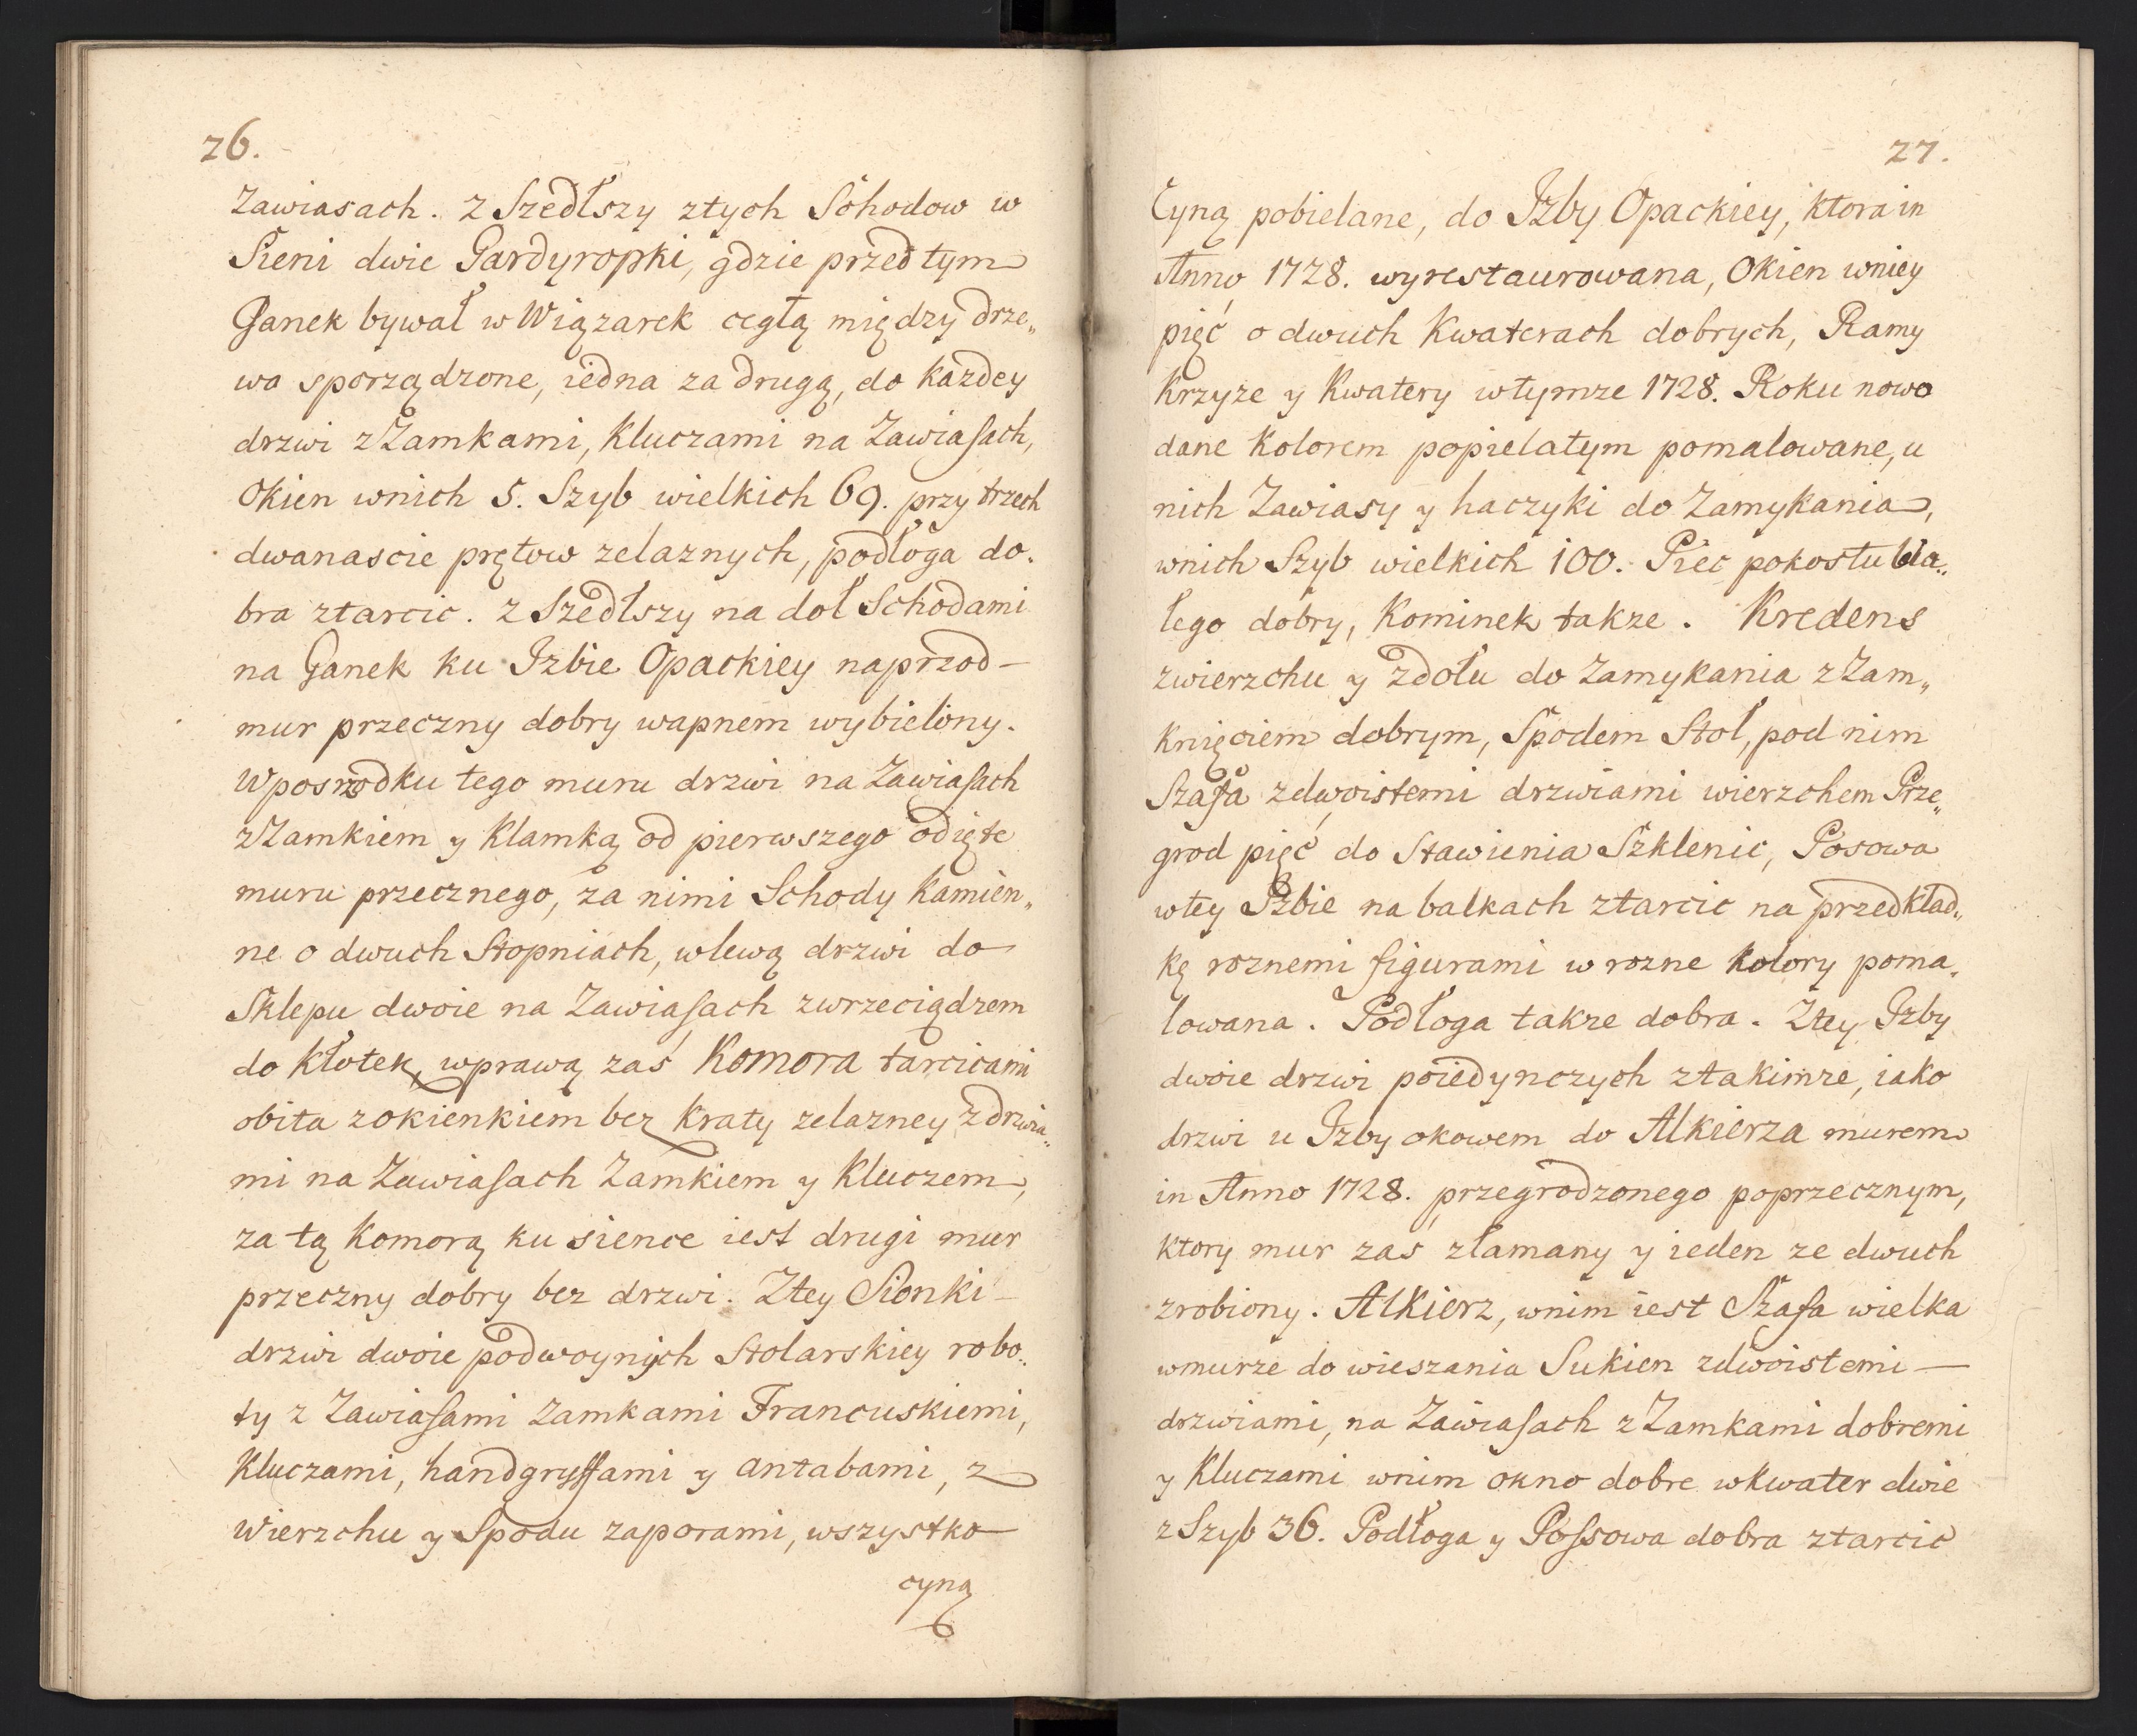 26.
Zawiasach. z Szedłszy ztych Schodow w
Sieni dwie Gardyropki, gdzie przed tym
Ganek bywał w Wiązarek cegłą między drze„
wo sporządzone, iedna za drugą, do każdey
drzwi z Zamkami, Kluczami na Zawiaſach,
Okien wnich 5. Szyb wielkich 69. przy trzech
dwanascie prętow zelaznych, podłoga do.
bra ztarcic. z Szedłszy na doł Schodami
na Ganek ku Izbie Opackiey naprzod —
mur przeczny dobry wapnem wybielony.
Wposrzodku tego muru drzwi na Zawiaſach
z Zamkiem y Klamką od pierwszego odięte
muru przecznego, za nimi Schody Kamien„
ne o dwuch Stopniach, wlewą drzwi do
Sklepu dwoie na Zawiaſach zwrzeciądzem
do Kłotek, wprawą zaś Komora tarcicami
obita zokienkiem bez Kraty zelazney z drzwia„
mi na Zawiaſach Zamkiem y Kluczem,
za tą Komorą ku sience iest drugi mur
przeczny dobry bez drzwi. Ztey Sionki —
drzwi dwoie podwoynych Stolarskiey robo„
ty z Zawiaſami zamkami Francuskiemi,
Kluczami, handgryffami y antabami, z
Wierzchu y Spodu zaporami, wszystko
cyną
27.
Cyną pobielane, do Izby Opackiey, ktora in
Anno 1728. wyrestaurowana, Okien wniey
pięć o dwuch Kwaterach dobrych, Ramy
Krzyze y Kwatery wtymze 1728. Roku nowo
dane Kolorem popielatym pomalowane, u
nich Zawiasy y haczyki do Zamykania,
wnich Szyb wielkich 100. Piec pokostu bia„
łego dobry, Kominek takze. Kredens
zwierzchu y zdołu do Zamykania z Zam„
knięciem dobrym, Spodem Stoł, pod nim
Szafa zdwoistemi drzwiami wierzchem Prze„
grod pięć do Stawienia Szklenic, Posowa
wtey Izbie na balkach ztarcic na przedkład„
kę roznemi figurami w rozne Kolory poma„
lowana. Podłoga takze dobra. Ztey Izby
dwoie drzwi poiedynczych ztakimze, iako
drzwi u Izby okowem do Alkierza murem
in Anno 1728. przegrodzonego poprzecznym,
ktory mur zaś złamany y ieden ze dwuch
zrobiony. Alkierz, wnim iest Szafa wielka
wmurze do wieszania Sukien zdwoistemi —
drzwiami, na Zawiaſach z Zamkami dobremi
y Kluczami wnim okno dobre wkwater dwie
z Szyb 36. Podłoga y Poſsowa dobra ztarcic